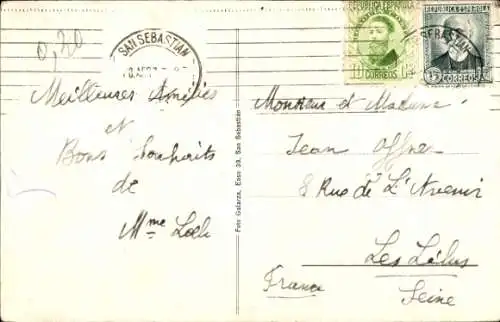 0,20
SAN SEBASTIAN
REPUBLICA ESPAÑOLA
10 CORREOS
REPUBLICA ESPAÑOLA
15 CORREOS
SEBASTIAN
Meilleures Amitiés
et
Bons Souhaits
de
Mme Loeb
Foto Galarza, Easo 39, San Sebastián
Monsieur et Madame
Jean Offner
8 Rue de L'Avenir
Les Lilas
France
Seine